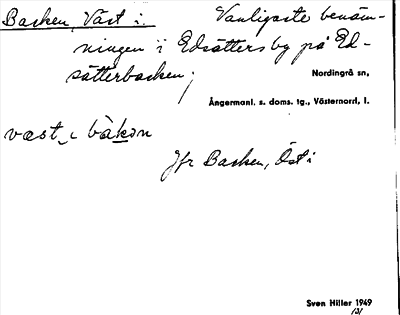 Backen, Väst i. Vanligaste benäm-
ningen i Edsätters by på Ed-
sätterbacken;
Nordingrå sn,
Ångermanl. s. doms. tg., Västernorrl. l.
væst ı bàkən
Jfr Backen, Öst i
Sven Hiller 1949